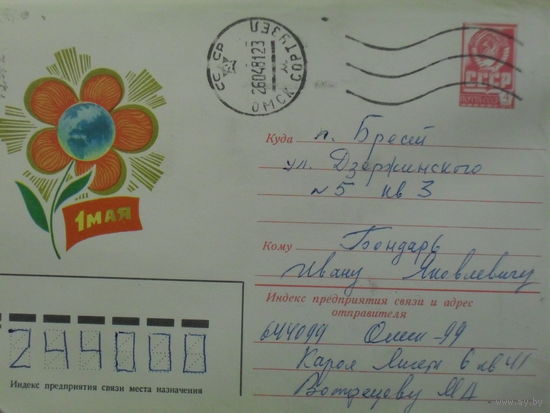 СССР
ОМСК СОРТУЗЕЛ
26048123
СССР
1 МАЯ
Куда г. Брест
ул. Дзержинского
№5 кв 3
Кому Бондарь
Ивану Яковлевичу
Индекс предприятия связи и адрес
отправителя
644099 Омск-99
Карла Либкн 6 кв 41
244000
Индекс предприятия связи места назначения
www.ay.by